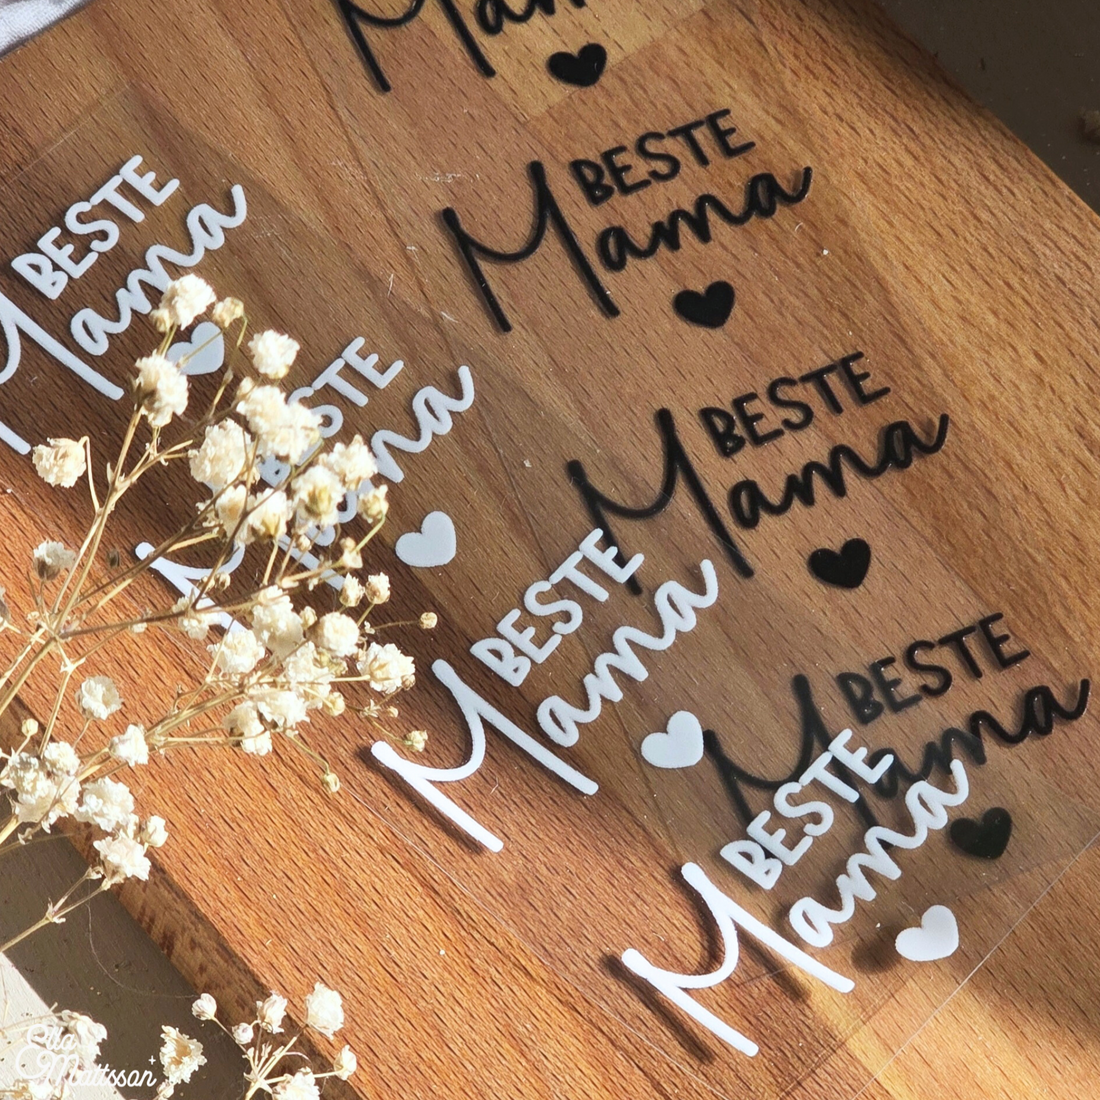 Mama
BESTE
Mama
BESTE
Mama
BESTE
Mama
BESTE
Mama
BESTE
Mama
BESTE
Mama
BESTE
Mama
Ella
Mattsson